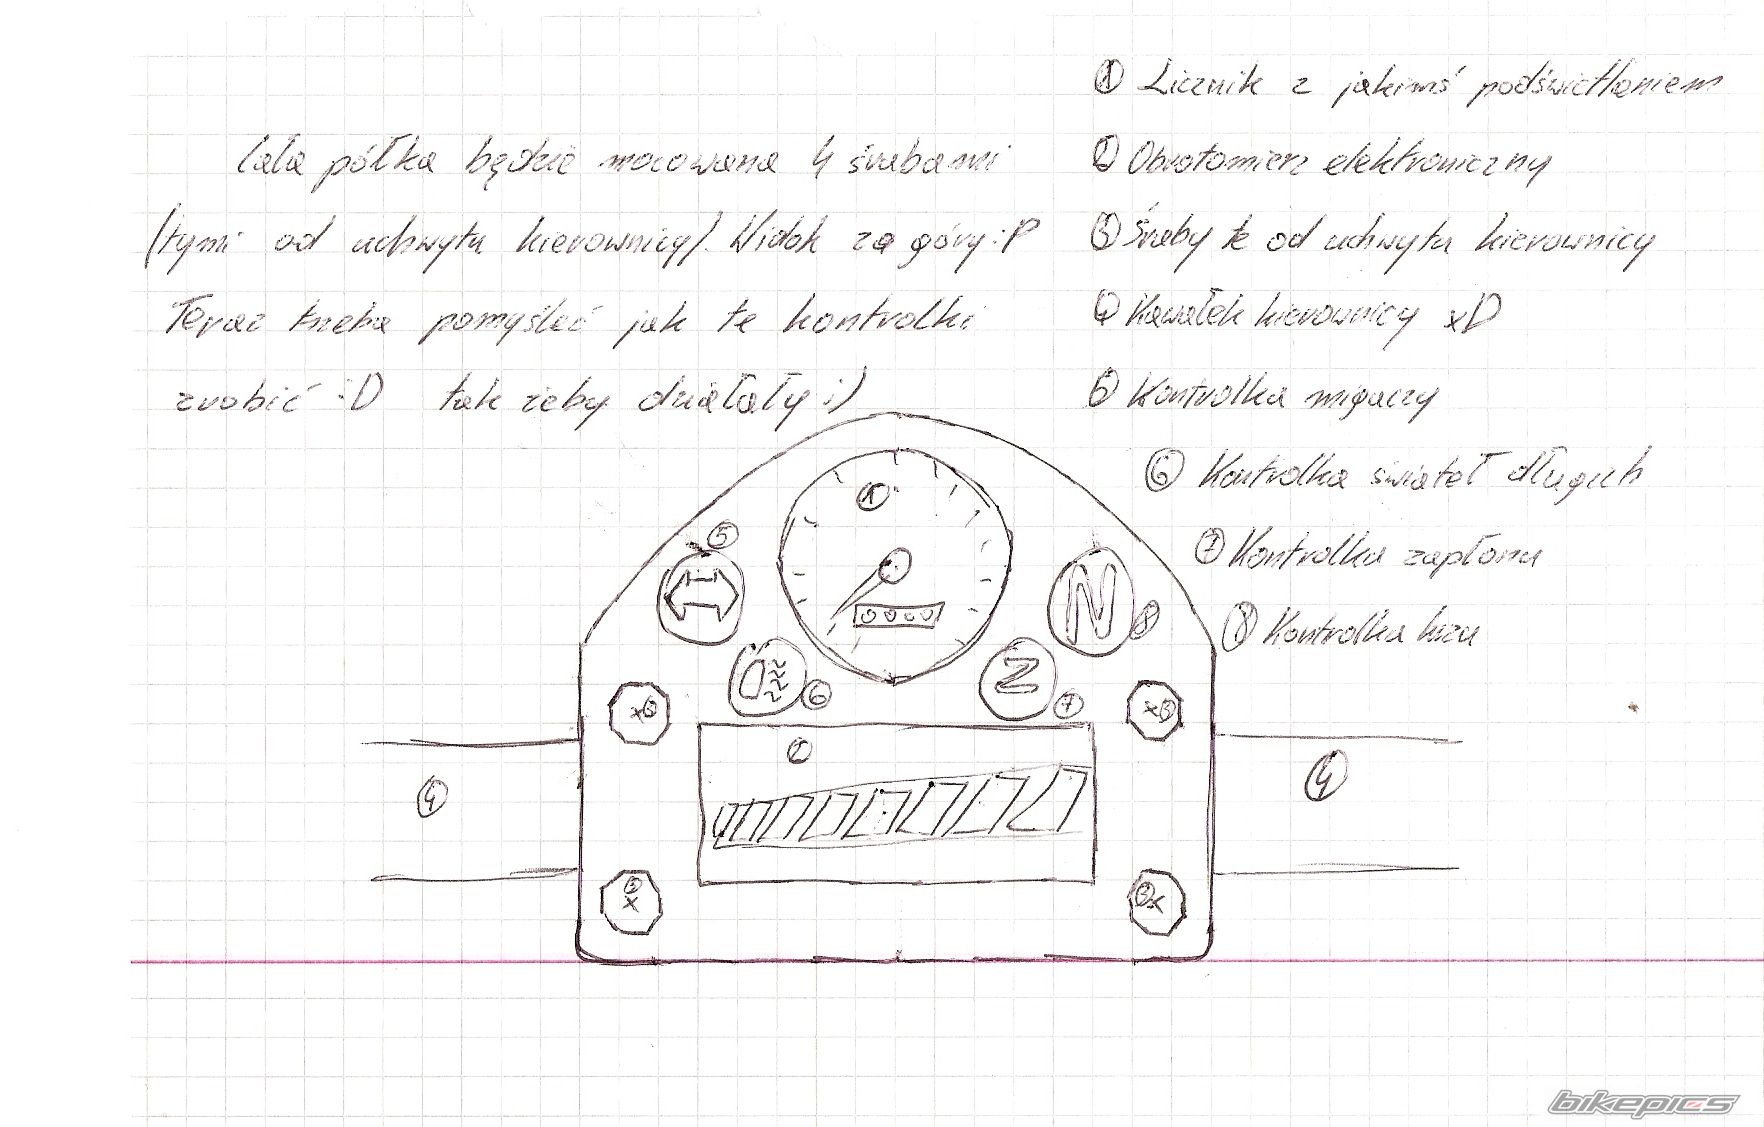 Cała półka będzie mocowana 4 śrubami
(tymi od uchwytu kierownicy). Widok za góry :P
Teraz trzeba pomyśleć jak te kontrolki
zrobić :D tak żeby działały ;)
① Licznik z jakimś podświetleniem
② Obrotomierz elektroniczny
③ Śruby te od uchwytu kierownicy
④ Kawałek kierownicy xD
⑤ Kontrolka migaczy
⑥ Kontrolka świateł długich
⑦ Kontrolka zapłonu
⑧ Kontrolka luzu
①
⑤
N
⑧
0000
⑥
Z
⑦
x③
x③
②
④
④
③
x
③x
bikepics